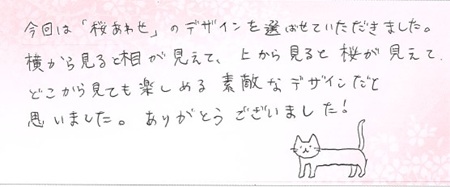 今回は「桜あわせ」のデザインを選ばせていただきました。
横から見ると相が見えて、上から見ると桜が見えて、
どこから見ても楽しめる素敵なデザインだと
思いました。ありがとうございました!